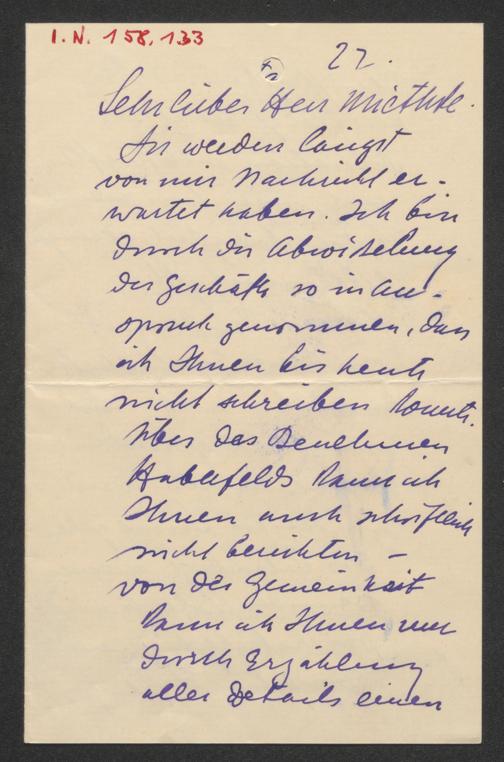 I.N. 158.133
22.
Sehr lieber Herr Miethke.
Sie werden längst
von mir Nachricht er-
wartet haben. Ich bin
durch die Abwickelung
der Geschäfte so in An-
spruch genommen, dass
ich Ihnen bis heute
nicht schreiben konnte.
Über das Benehmen
Haberfelds kann ich
Ihnen auch schriftlich
nicht berichten –
von der Gemeinheit
kann ich Ihnen nur
durch Erzählung
aller Details einen